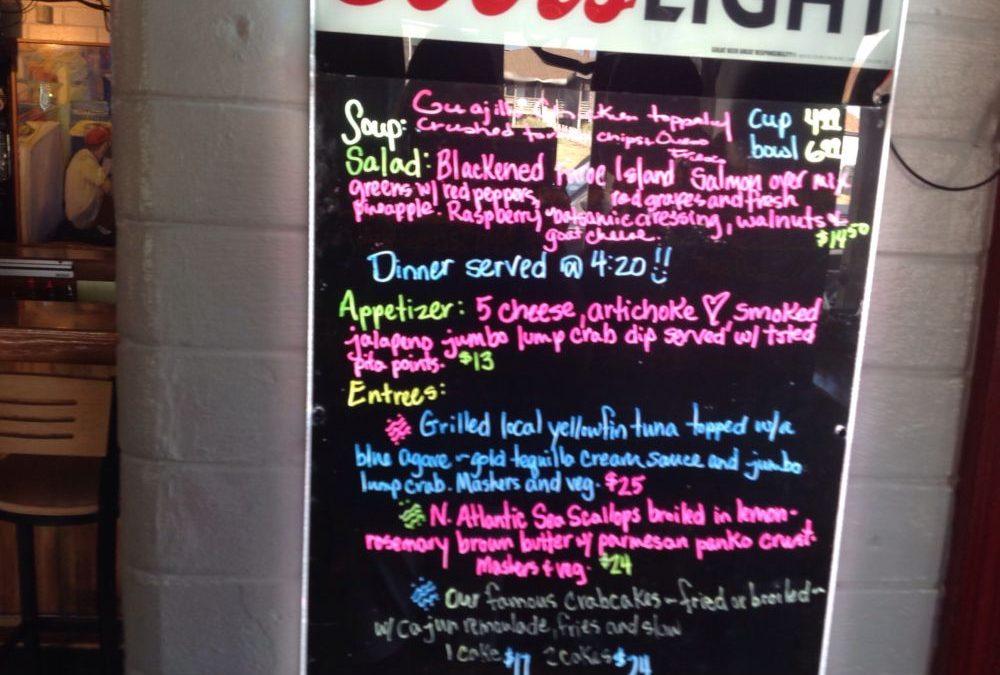 Coors LIGHT
GREAT BEER GREAT RESPONSIBILITY
Soup: topped w/ Cup 4
crushed chips, Queso bowl 6
Fresco
Salad: Blackened Faroe Island Salmon over mix
greens w/ red peppers, red grapes and fresh
pineapple. Raspberry balsamic dressing, walnuts &
goat cheese. $14.50
Dinner served @ 4:20!!
Appetizer: 5 cheese, artichoke ♡ smoked
jalapeno jumbo lump crab dip served w/ tsted
pita points. $13
Entrees:
Grilled local yellowfin tuna topped w/a
blue agave - gold tequilla cream sauce and jumbo
lump crab. Mashers and veg. $25
N. Atlantic Sea Scallops broiled in lemon-
rosemary brown butter w/ parmesan panko crust.
Mashers + veg. $24
Our famous crabcakes - fried or broiled -
w/ cajun remoulade, fries and slaw
1 cake $17 2 cakes $24